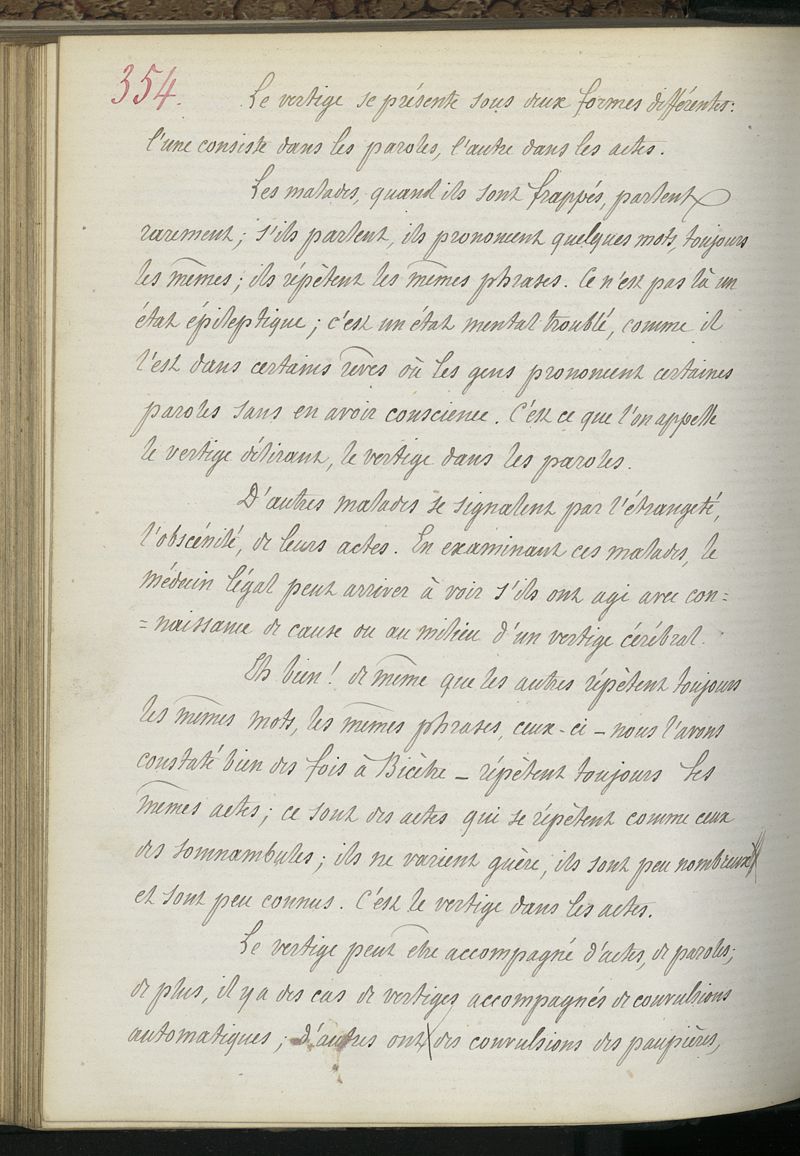 354.
Le vertige se présente sous deux formes différentes:
l'une consiste dans les paroles, l'autre dans les actes.
Les malades, quand ils sont frappés, parlent
rarement; s'ils parlent, ils prononcent quelques mots, toujours
les mêmes; ils répètent les mêmes phrases. Ce n'est pas là un
état épileptique; c'est un état mental troublé, comme il
l'est dans certains rêves où les gens prononcent certaines
paroles sans en avoir conscience. C'est ce que l'on appelle
le vertige délirant, le vertige dans les paroles.
D'autres malades se signalent par l'étrangeté,
l'obscénité, de leurs actes. En examinant ces malades, le
médecin légal peut arriver à voir s'ils ont agi avec con=
=naissance de cause ou au milieu d'un vertige cérébral.
Eh bien! de même que les autres répètent toujours
les mêmes mots, les mêmes phrases, ceux-ci – nous l'avons
constaté bien des fois à Bicêtre – répètent toujours les
mêmes actes; ce sont des actes qui se répètent comme ceux
des somnambules; ils ne varient guère, ils sont peu nombreux
et sont peu connus. C'est le vertige dans les actes.
Le vertige peut être accompagné d'actes, de paroles;
de plus, il y a des cas de vertiges accompagnés de convulsions
automatiques; d'autres ont des convulsions des paupières,